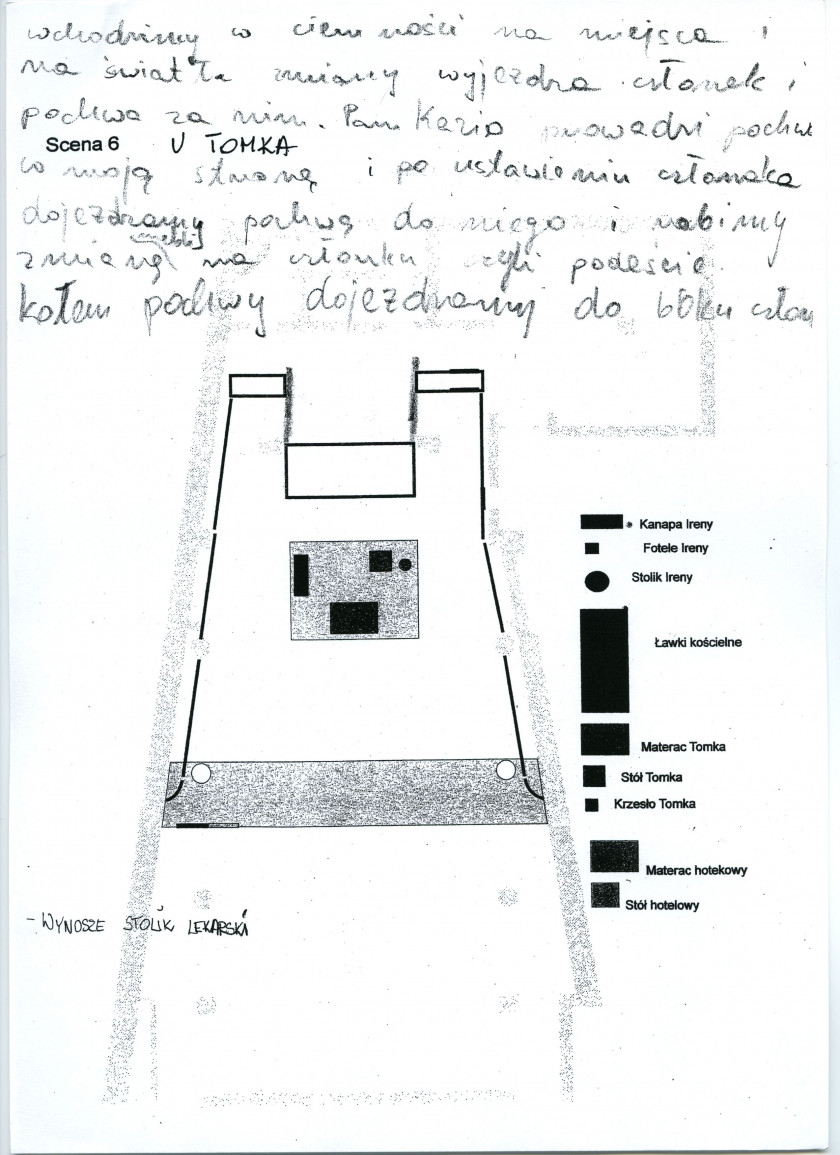 wchodzimy w ciemności na miejsca i
na światła zmiany wyjeżdża członek i
pochwa za nim. Pan Kazio prowadzi pochw
Scena 6 U TOMKA
w moją stronę i po ustawieniu członaka
dojeżdżamy pochwą do niego i robimy
zmianę na członku czyli podeście.
kołem pochwy dojeżdżamy do boku człon
Kanapa Ireny
Fotele Ireny
Stolik Ireny
Ławki kościelne
Materac Tomka
Stół Tomka
Krzesło Tomka
Materac hotekowy
Stół hotelowy
- WYNOSZE STOLIK LEKARSKI